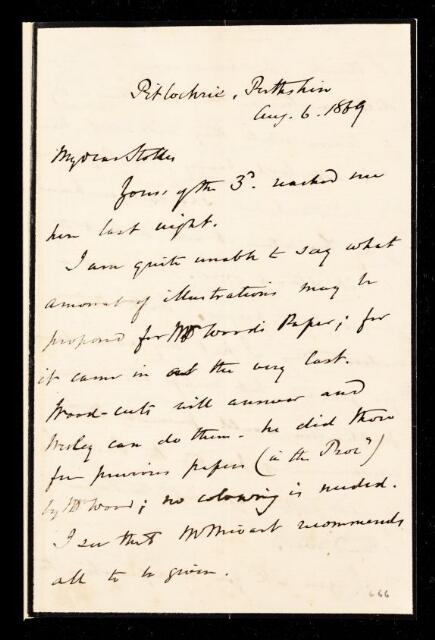 Pitlochrie, Perthshire
Aug. 6. 1869
My dear Stokes
Yours of the 3d. reached me
here last night.
I am quite unable to say what
amount of illustrations may be
proposed for Mr Wood's Paper; for
it came in at the very last.
Wood-cuts will answer and
Wesley can do them. he did those
for previous papers (in the Procgs)
by Mr Wood; no colouring is needed.
I see that Mr Mivart recommends
all to be given.
666